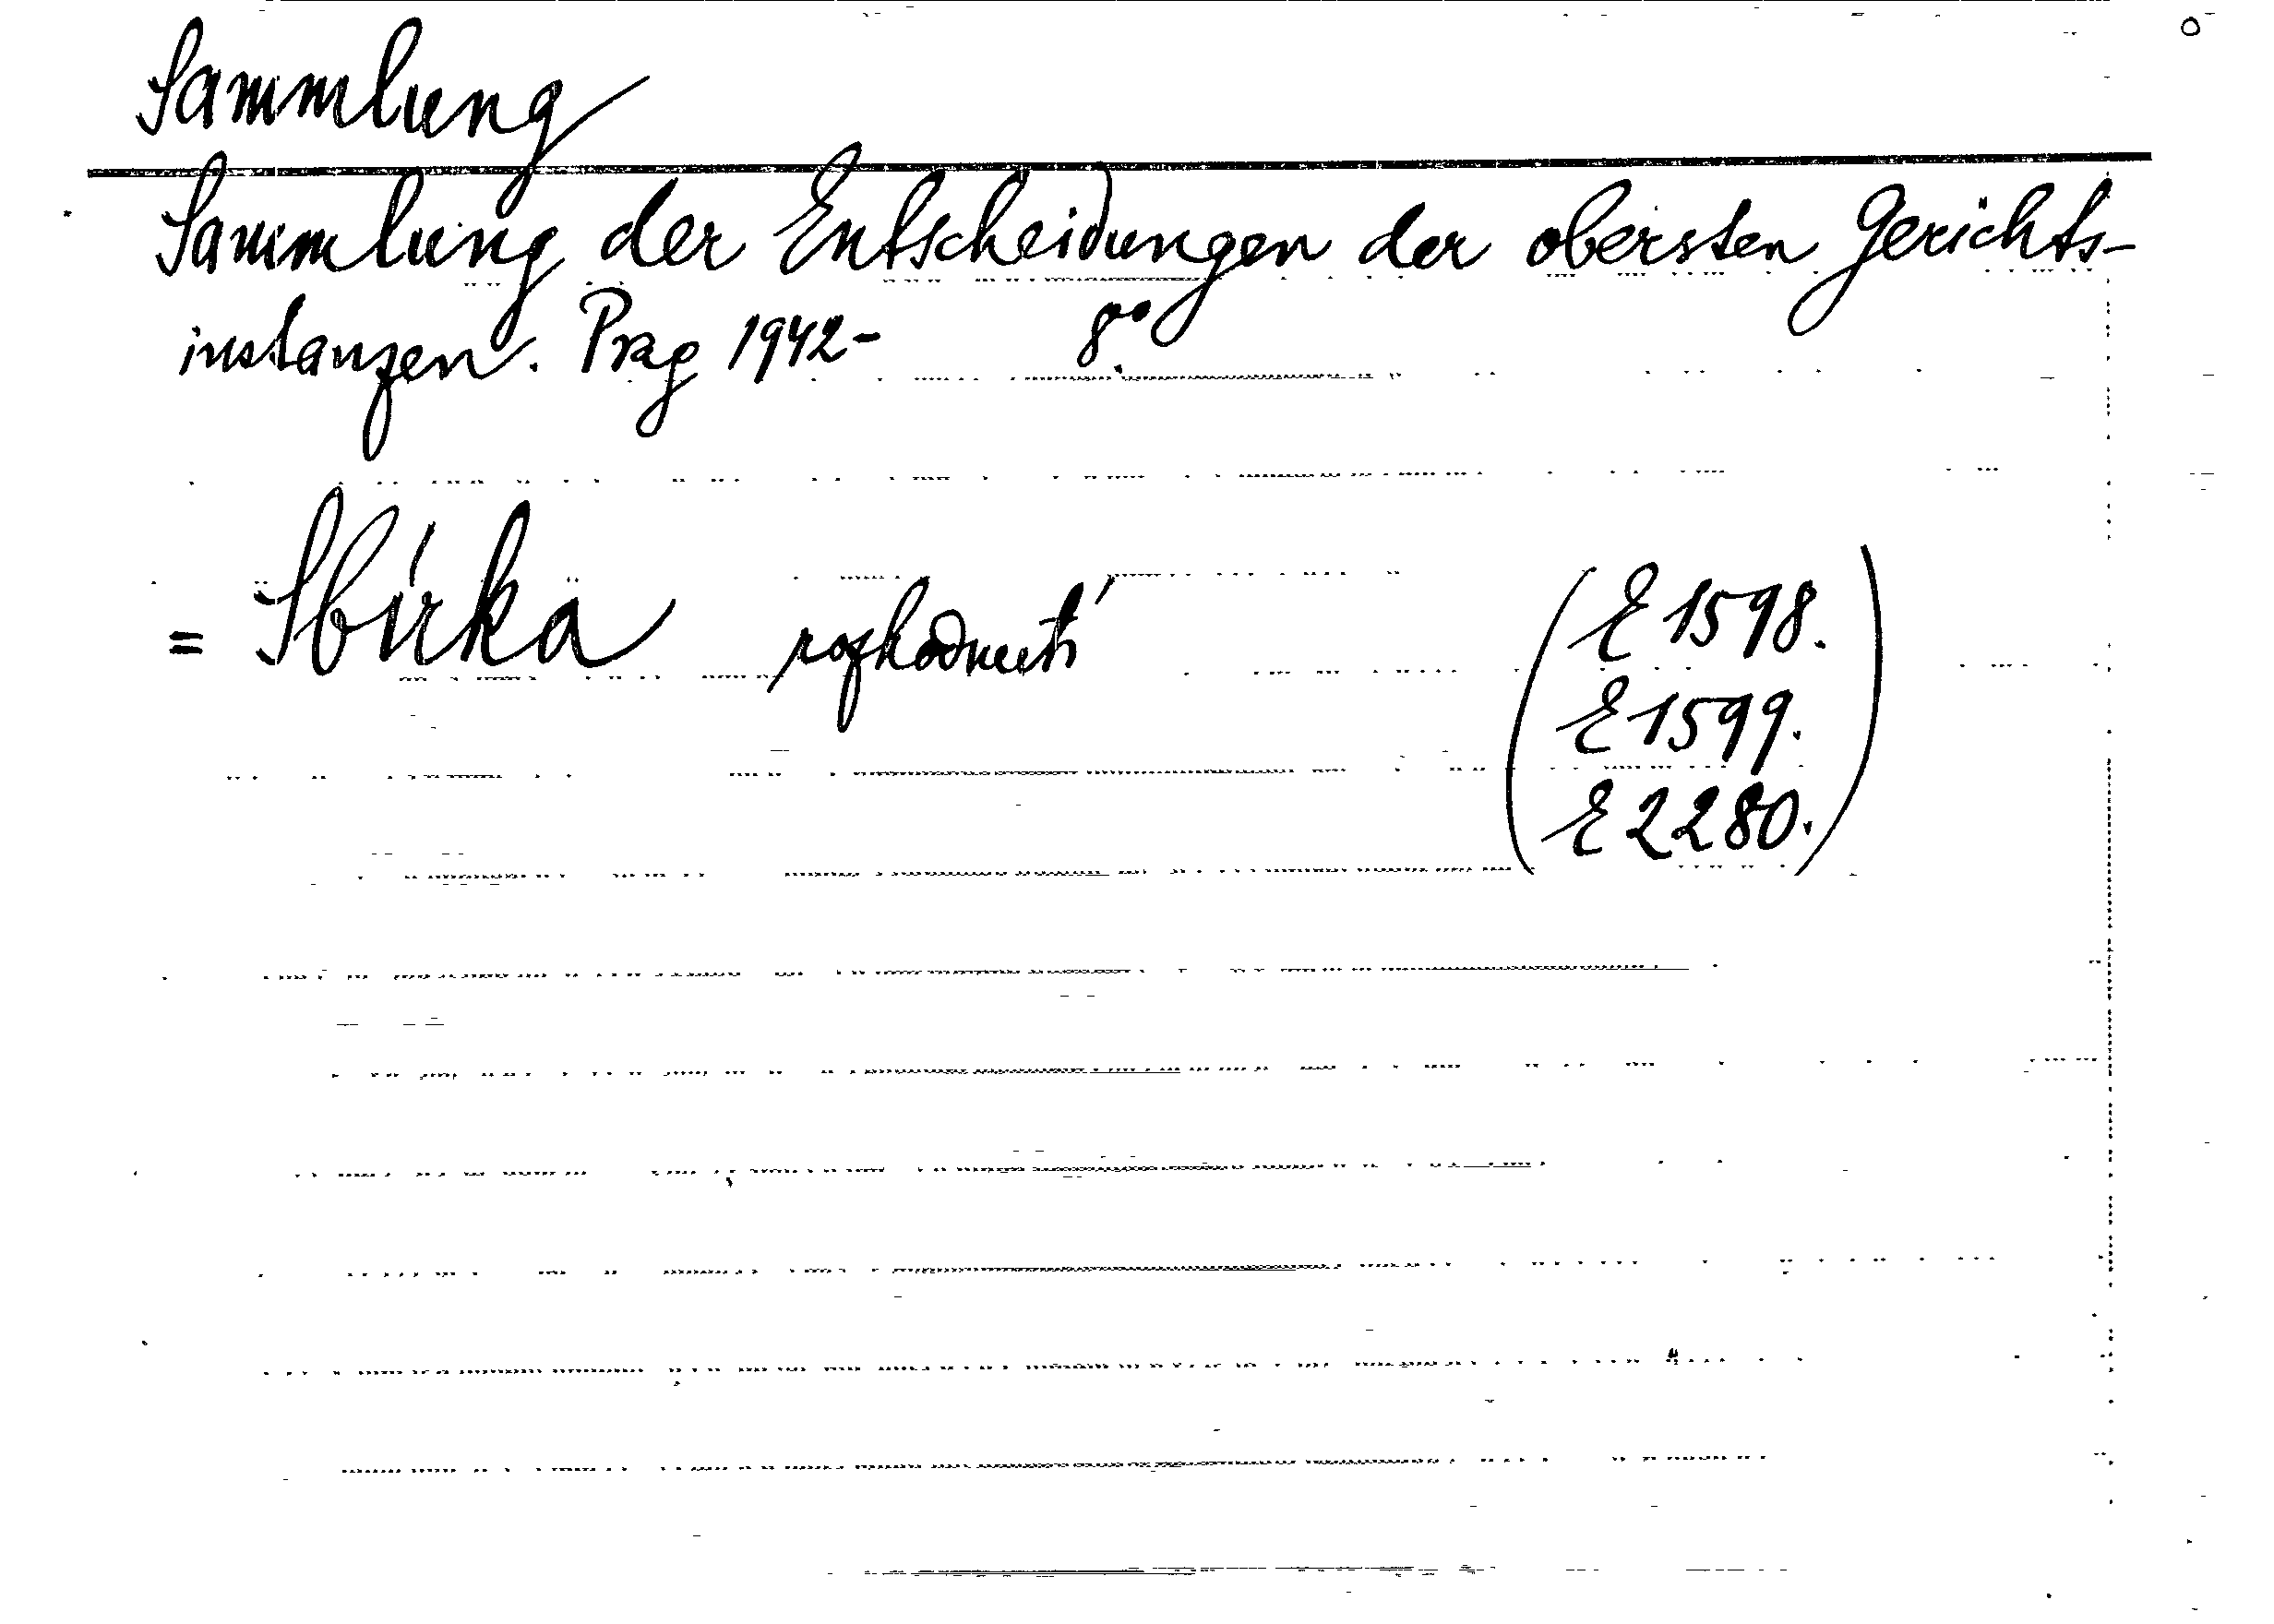 Sammlung
Sammlung der Entscheidungen der obersten Gerichts-
instanzen. Prag 1942- 8°.
= Sbírka rozhodnutí
(E 1598.
E 1599.
E 2280.)